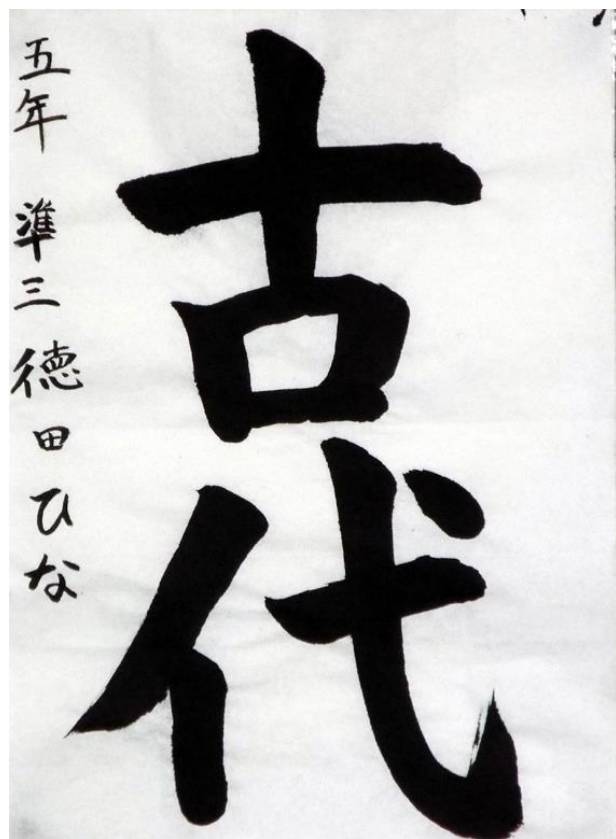 古代
五年 準三 徳田ひな